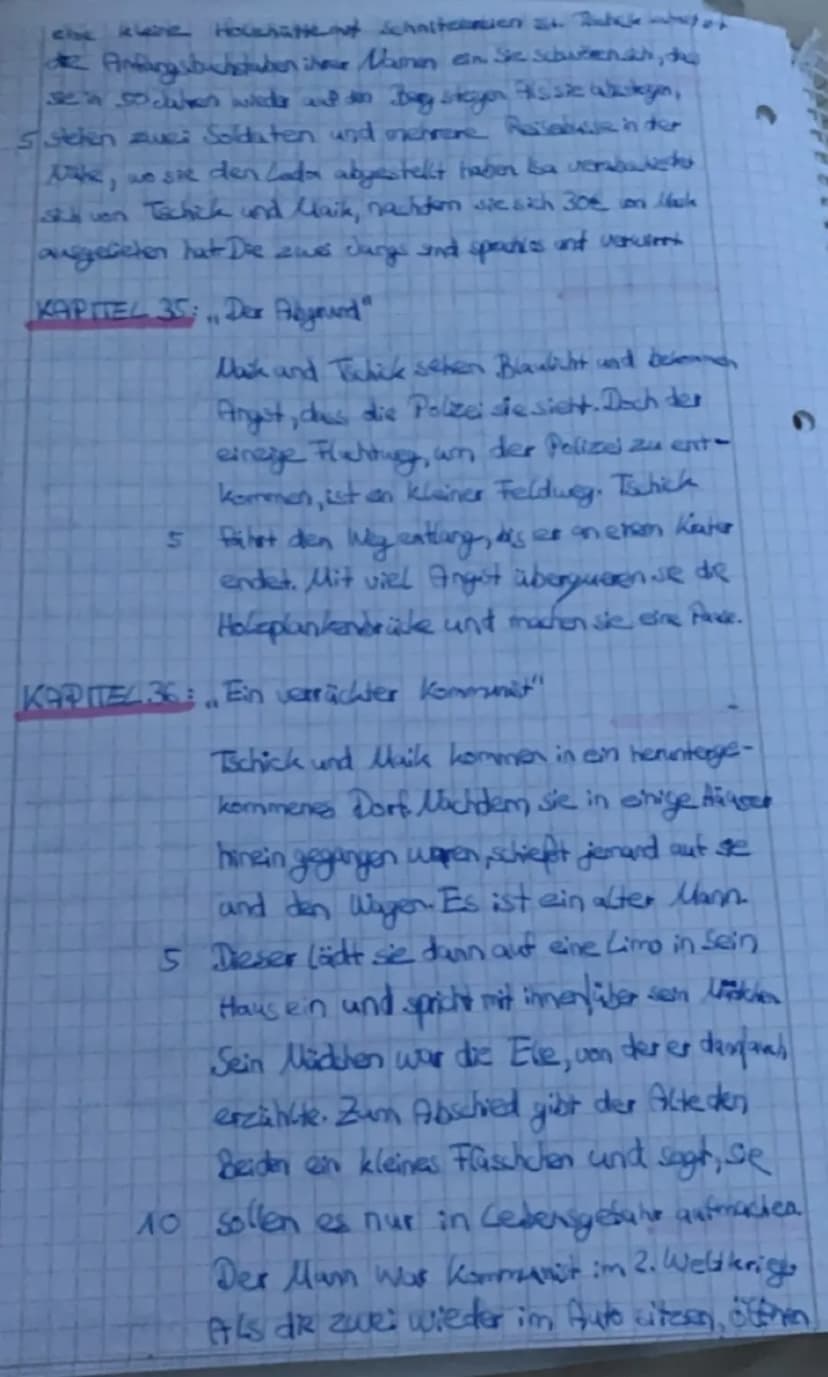 eine kleine Holzhütte mit
Anfangsbuchstaben ihrer Namen ein. Sie schwören sich, das
sie in 50 Jahren wieder auf den Berg steigen. Als sie absteigen,
5 stehen zwei Soldaten und mehrere Reisebusse in der
Nähe, wo sie den Lada abgestellt haben. Isa verabschiedet
sich von Tschick und Maik, nachdem sie sich 30€ von Maik
ausgeliehen hat. Die zwei Jungs sind sprachlos und verwirrt
KAPITEL 35: „Der Abgrund"
Maik und Tschick sehen Blaulicht und bekommen
Angst, das die Polizei sie sieht. Doch der
einzige Fluchtweg, um der Polizei zu ent-
kommen, ist ein kleiner Feldweg. Tschick
5 fährt den Weg entlang, bis er an einem Krater
endet. Mit viel Angst überqueren sie die
Holzplankenbrücke und machen sie eine Pause.
KAPITEL 36: „Ein verrückter Kommunist"
Tschick und Maik kommen in ein herunterge-
kommenes Dorf. Nachdem sie in einige Häuser
hinein gegangen waren, schießt jemand auf sie
und den Wagen. Es ist ein alter Mann.
5 Dieser lädt sie dann auf eine Limo in sein
Haus ein und spricht mit ihnen über sein Mädchen
Sein Mädchen war die Else, von der er
erzählte. Zum Abschied gibt der Alte den
Beiden ein kleines Fläschchen und sagt, sie
10 sollen es nur in Lebensgefahr aufmachen.
Der Mann war Kommunist im 2. Weltkrieg.
Als die zwei wieder im Auto sitzen, öffnen